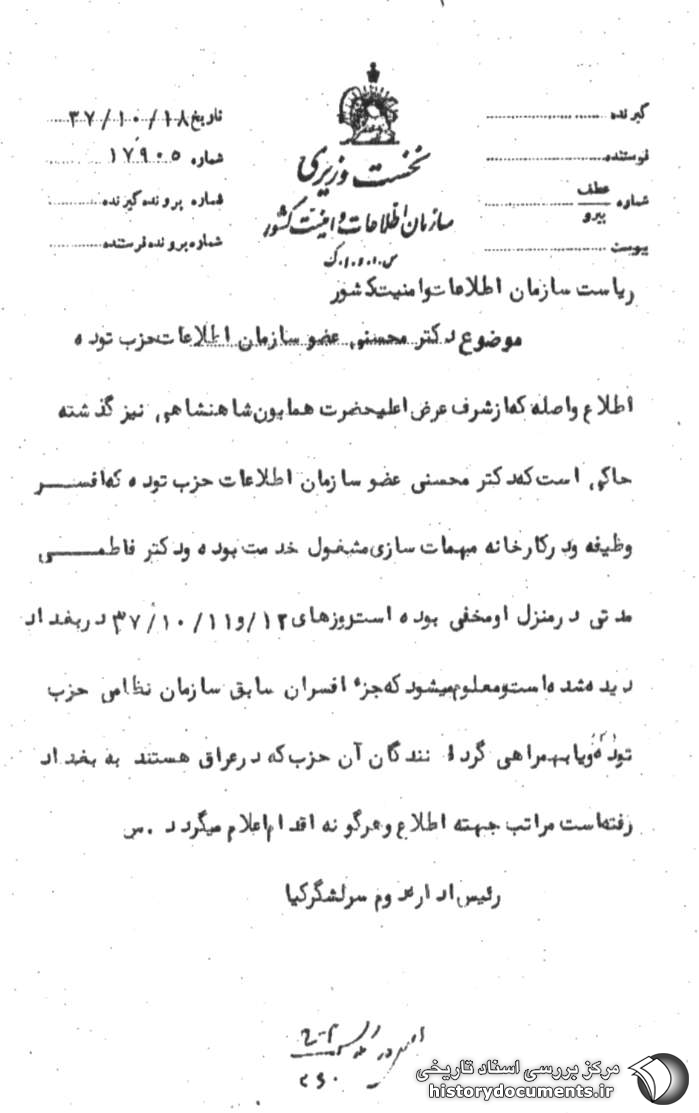 گیرنده
فرستنده
شماره عطف
پیرو
پیوست
نخست وزیری
سازمان اطلاعات و امنیت کشور
س.ا.و.ا.ک
تاریخ ۳۷/۱۰/۱۸
شماره ۱۷۹۰۵
شماره پرونده گیرنده
شماره پرونده فرستنده
ریاست سازمان اطلاعات وامنیت کشور
موضوع دکتر محسنی عضو سازمان اطلاعات حزب توده
اطلاع واصله که از شرف عرض اعلیحضرت همایون شاهنشاهی نیز گذشته
حاکی است که دکتر محسنی عضو سازمان اطلاعات حزب توده که افسر
وظیفه ودرکارخانه مهمات سازی مشغول خدمت بوده ودکتر فاطمی
مدتی درمنزل اومخفی بوده است روزهای ۱۲/و۳۷/۱۰/۱۱ دربغداد
دیده شده است ومعلوم میشود که جزء افسران سابق سازمان نظامی حزب
توده ویا بهمراهی گردانندگان آن حزب که درعراق هستند به بغداد
رفته است مراتب جهته اطلاع وهرگونه اقدام اعلام میگردد .س
رئیس اداره دوم سرلشگرکیا
مرکز بررسی اسناد تاریخی
historydocuments.ir